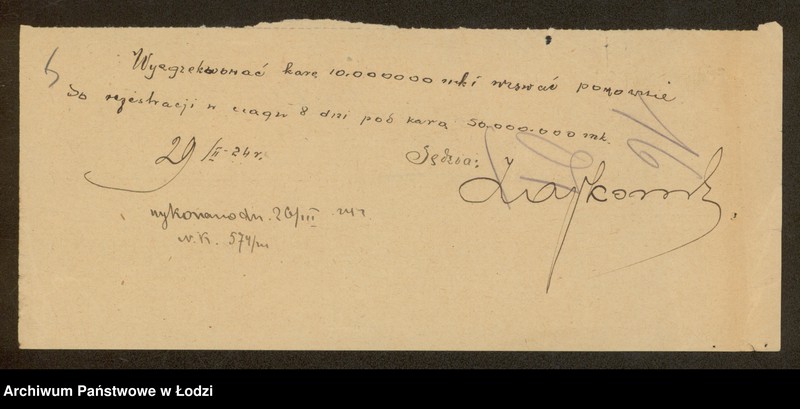 Wyegzekwować karę 10.000000 mk i wezwać ponownie
do rejestracji w ciągu 8 dni pod karą 50.000.000 mk.
29/II-24 r. Sędzia:
wykonano dn. 26/III 24 r.
N.K. 574/
Archiwum Państwowe w Łodzi